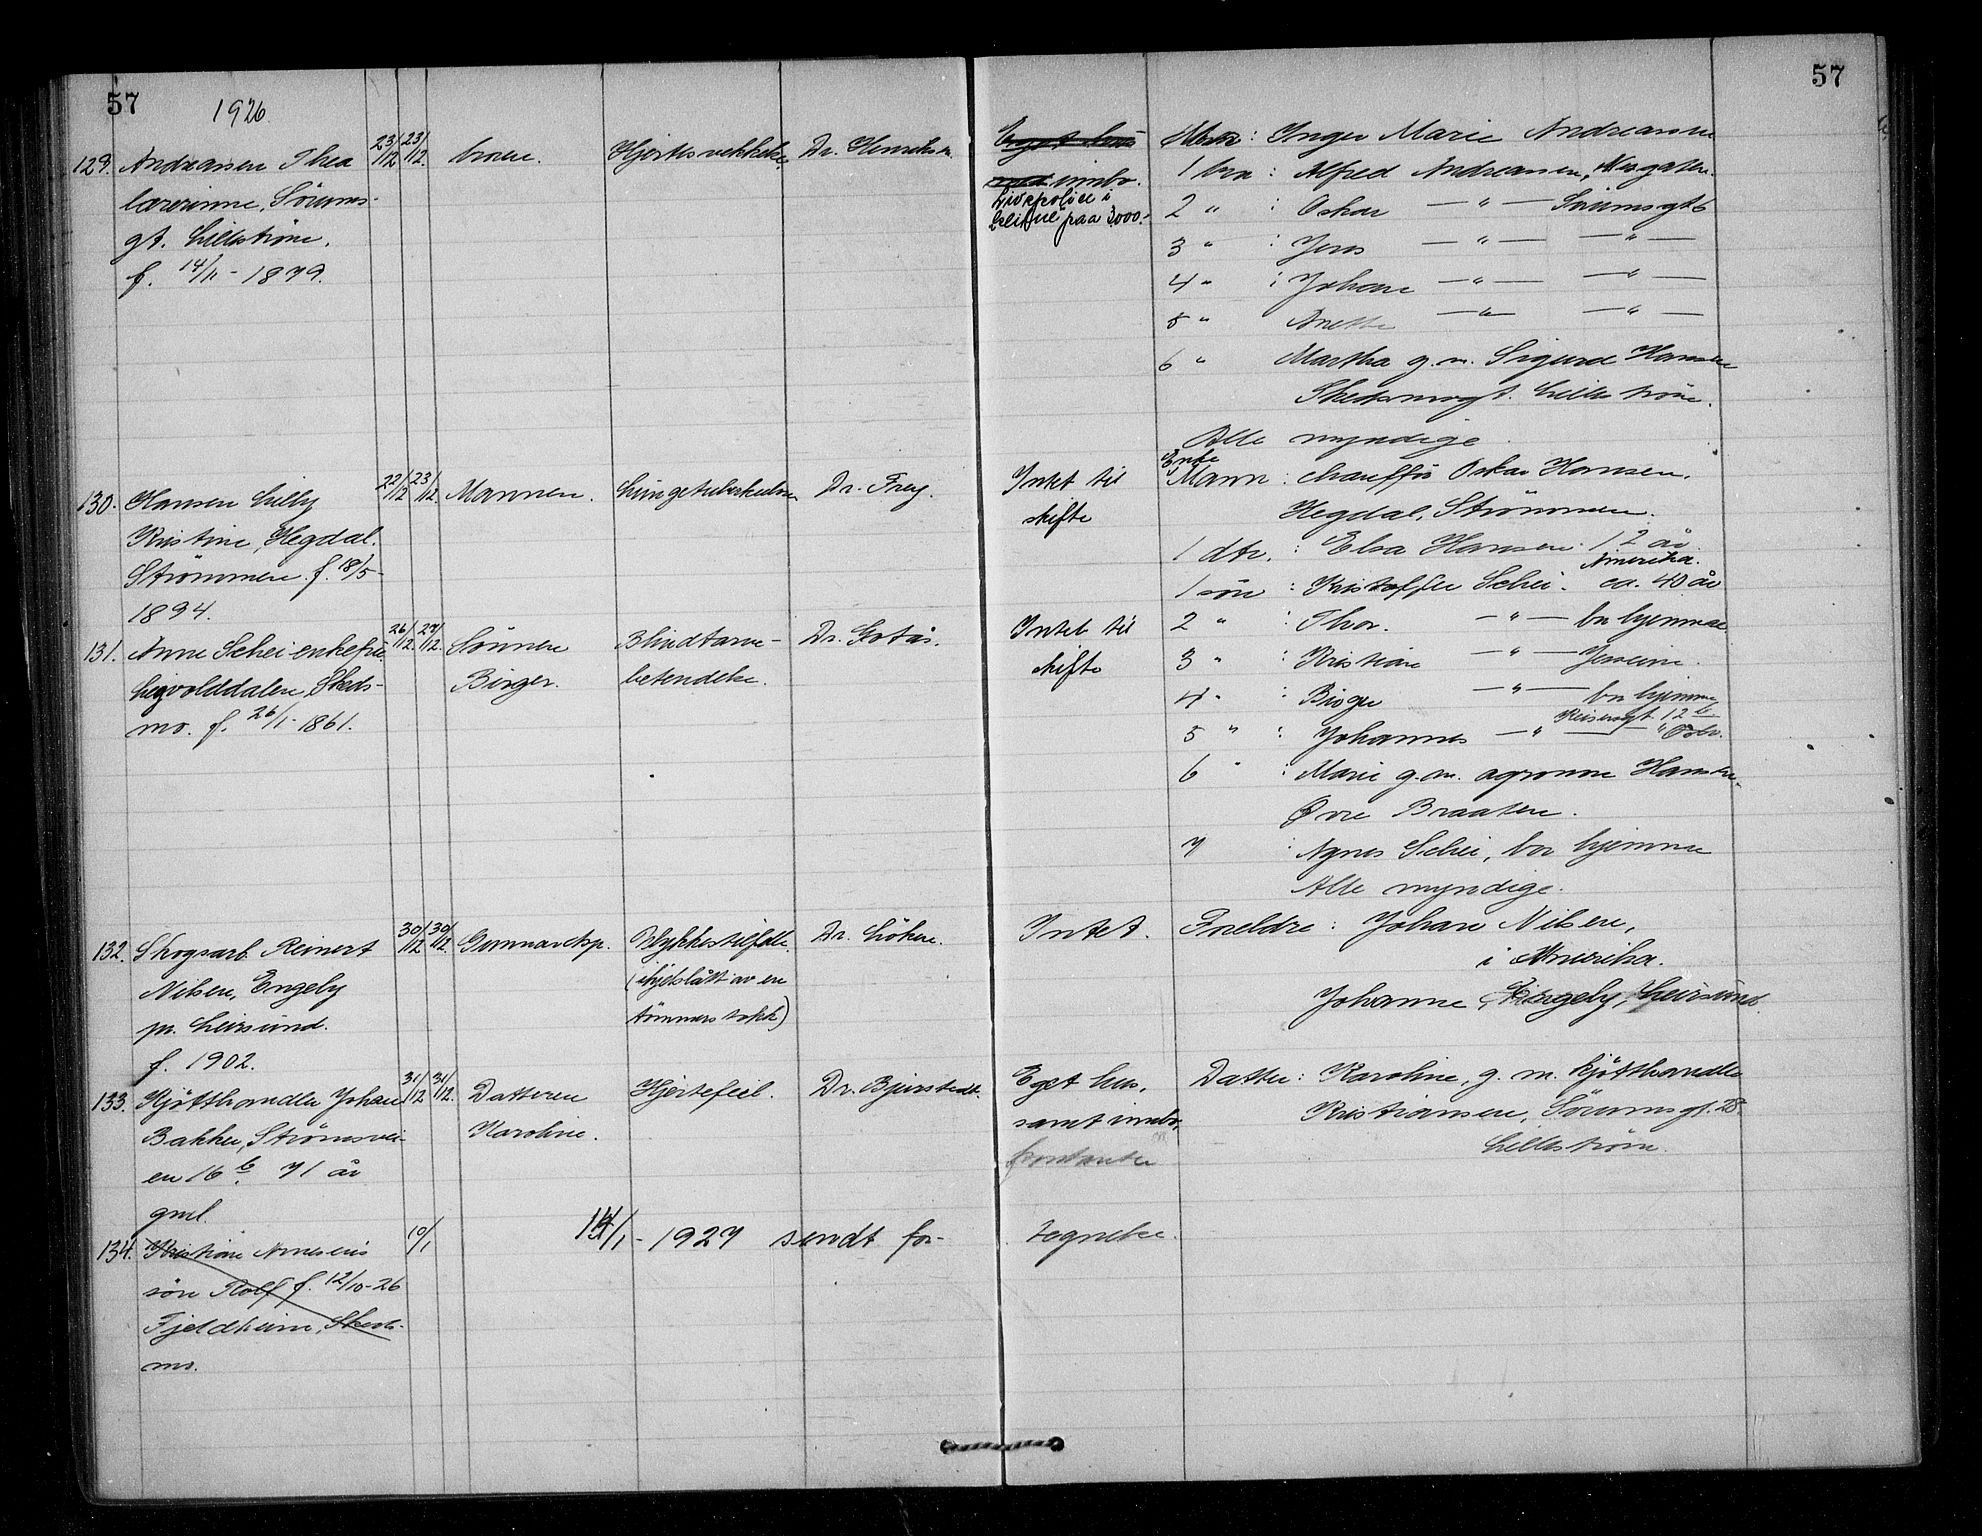 57
1926.
57
129. Andreassen Thea
lærerinne, Sørums-
gt. Lillestrøm.
f. 14/11 - 1879.
23/12 23/12
broren.
Hjertesvekkelse
Dr. Henriksen
Eget hus
med innbo.
Livspolice i
paa 3000.-
Mor: Inger Marie Andreassen
1 bror : Alfred Andreassen, Nesgaten.
2 " : Oskar — " — Sørumsgt 6
3 " : Jens — " — — " —
4 " : Johan — " — — " —
5 " Anette — " — — " —
6 " Martha g.m. Sigurd Hansen
Skedsmogt. Lillestrøm.
Alle myndige.
130. Hansen Lilly
Kristine, Hegdal.
Strømmen. f. 18/5-
1894.
22/12 23/12
Mannen.
Lungetuberkulose
Dr. Frey.
Intet til
skifte
Enke
Mann : chauffør Oskar Hansen.
Hegdal, Strømmen.
1 dtr. : Elsa Hansen. 12 år.
131. Anne Schei enkefru
Leirvolddalen, Skeds-
mo. f. 26/1 - 1861.
26/12 27/12
Sønnen
Birger.
Blindtarm-
betendelse.
Dr. Gotås.
Intet til
skifte
Amerika.
1 søn : Kristoffer Schei. ca. 40 år
2 " : Thor. — " — bor hjemme
3 " : Kristian — " —
4 " : Birger — " — bor hjemme
12 b
5 " : Johannes — " — " Oslo.
6 " : Marie g.m. agronom Hansen
Øvre Braaten.
7 : Agnes Schei, bor hjemme
Alle myndige.
132. Skogsarb. Reinert
Nilsen, Engeby
pr. Leirsund.
f. 1902.
30/12 30/12
Gunnar Asp.
Ulykkestilfelle
(ihjelslått av en
tømmerstokk)
Dr. Løken.
Intet.
Foreldre : Johan Nilsen,
i Amerika.
Johanne Engeby, Leirsund.
133. Kjøtthandler Johan
Bakken, Strømsvei-
en 16 b. 71 år
gml.
31/12 31/12
Datteren
Karoline.
Hjertefeil.
Dr. Bjerstedt.
Eget hus,
samt innbo,
kontanter
Datter : Karoline, g. m. kjøtthandler
Kristiansen, Sørumsgt. 28.
Lillestrøm.
134. Kristian Arnesens
søn Rolf f. 12/10-26
Fjeldheim, Skeds-
mo.
10/1
14/1 - 1927 sendt for-
tegnelse.